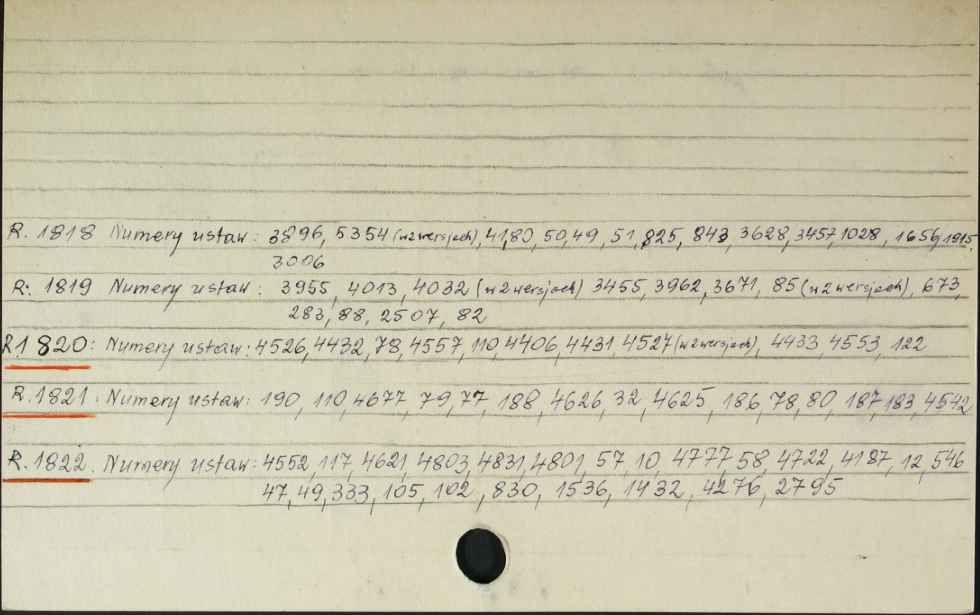 R. 1818 Numery ustaw: 3896, 5354 (w 2 wersjach), 4180, 50, 49, 51, 825, 843, 3628, 3457, 1028, 1656, 1915,
3006
R. 1819 Numery ustaw: 3955, 4013, 4032 (w 2 wersjach) 3455, 3962, 3671, 85 (w 2 wersjach), 673,
283, 88, 2507, 82
R1820: Numery ustaw: 4526, 4432, 78, 4557, 110, 4406, 4431, 4527 (w 2 wersjach), 4433, 4553, 122
R. 1821: Numery ustaw: 190, 110, 4677, 79, 77, 188, 4626, 32, 4625, 186, 78, 80, 187, 183, 4542
R. 1822. Numery ustaw: 4552, 117, 4621, 4803, 4831, 4801, 57, 10, 4777 58, 4722, 4187, 12, 546
47, 49, 333, 105, 102, 830, 1536, 1432, 4276, 2795